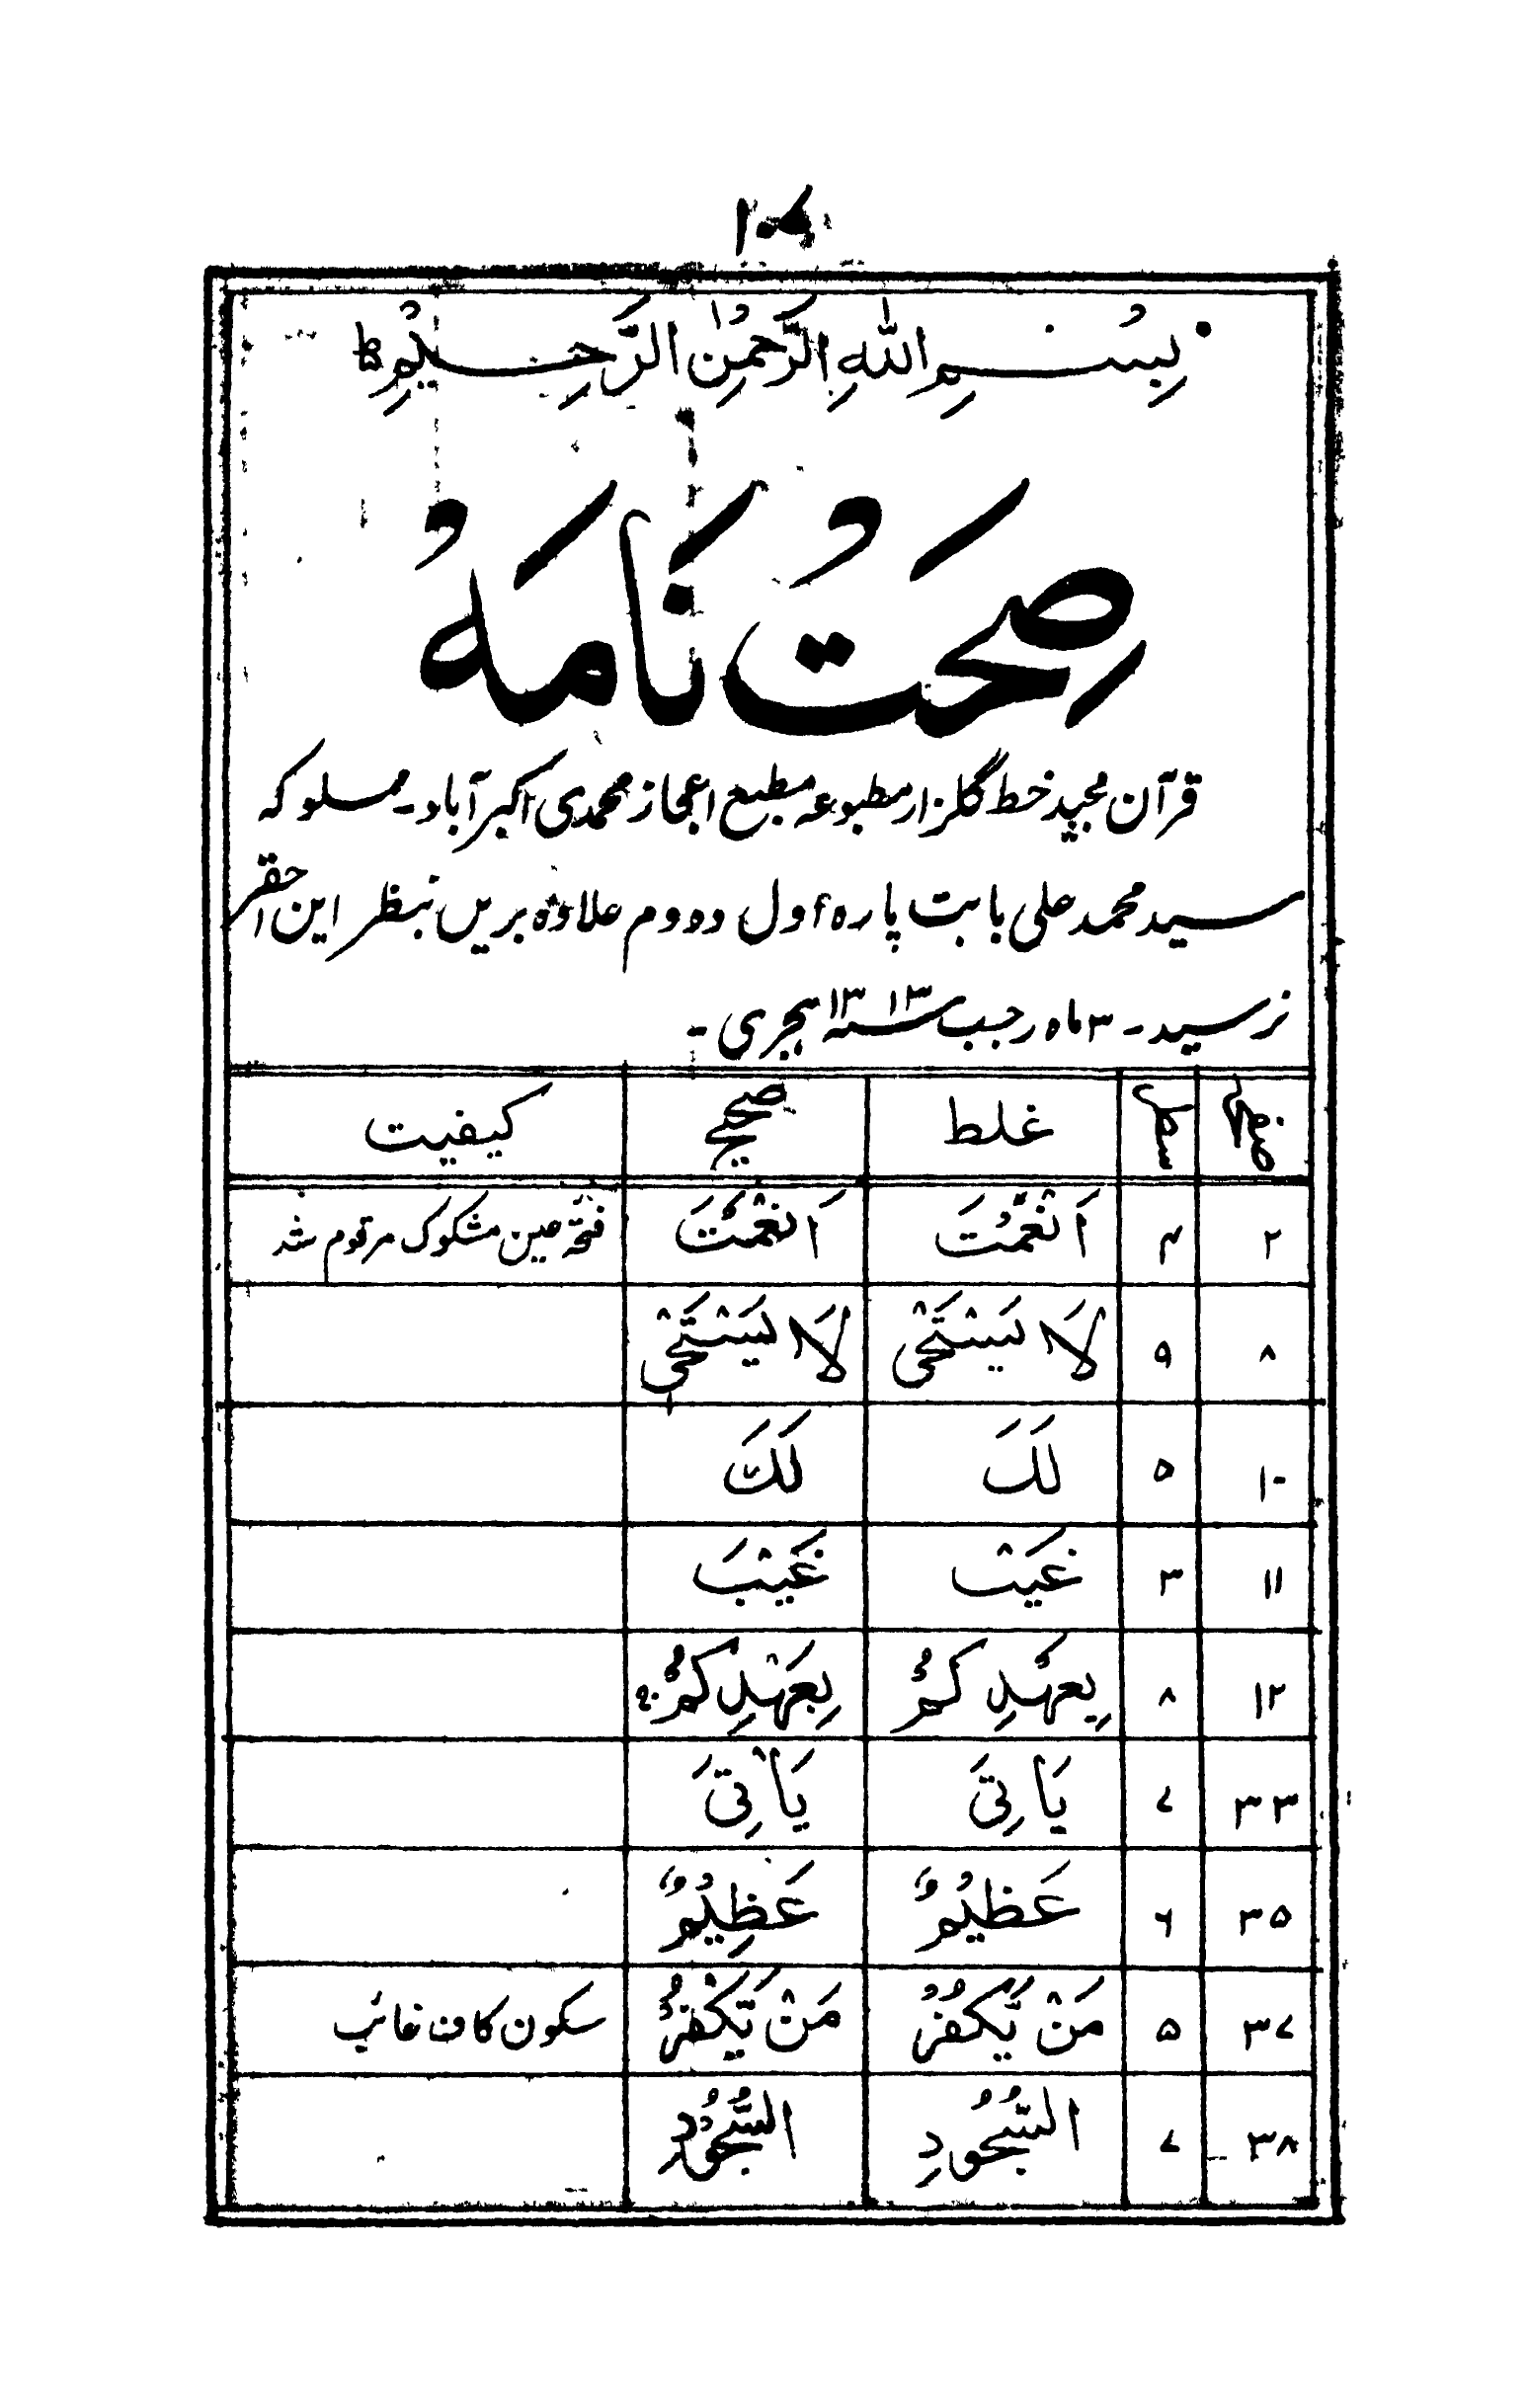 بِسْمِ اللّٰهِ الرَّحْمٰنِ الرَّحِيْمِ ط
صِحَتُ نَامَہُ
قرآن مجید خط گلزار مطبوعہ مطبع اعجاز محمدی اکبرآباد۔ مسلوکہ
سید محمد علی بابت پارہ اول ودوم علاوہ بریں بنظر این احقر
نرسید۔ ۳ ماہ رجب سنہ ۱۳۱۳ ہجری۔
صفحہ سطر غلط صحیح کیفیت
۲ ۴ اَنْعَمْتَ اَنْعَمْتَ فتحہ عین مشکوک مرقوم شد
۸ ۹ لَا يَسْتَحْی لَا يَسْتَحْی
۱۰ ۵ لَكَ لَكَ
۱۱ ۳ غَيْب غَيْبَ
۱۲ ۸ بِعهْدِ كُمْ بِعَهْدِكُمْ
۳۳ ۷ يَاتِیَ يَاْتِیَ
۳۵ ۶ عَظيْمٌ عَظِيْمٌ
۳۷ ۵ مَنْ يَّكفُرُ مَنْ يَّكْفُرُ سکون کاف غائب
۳۸ ۷ السُّجُودِ السُّجُوْدِ